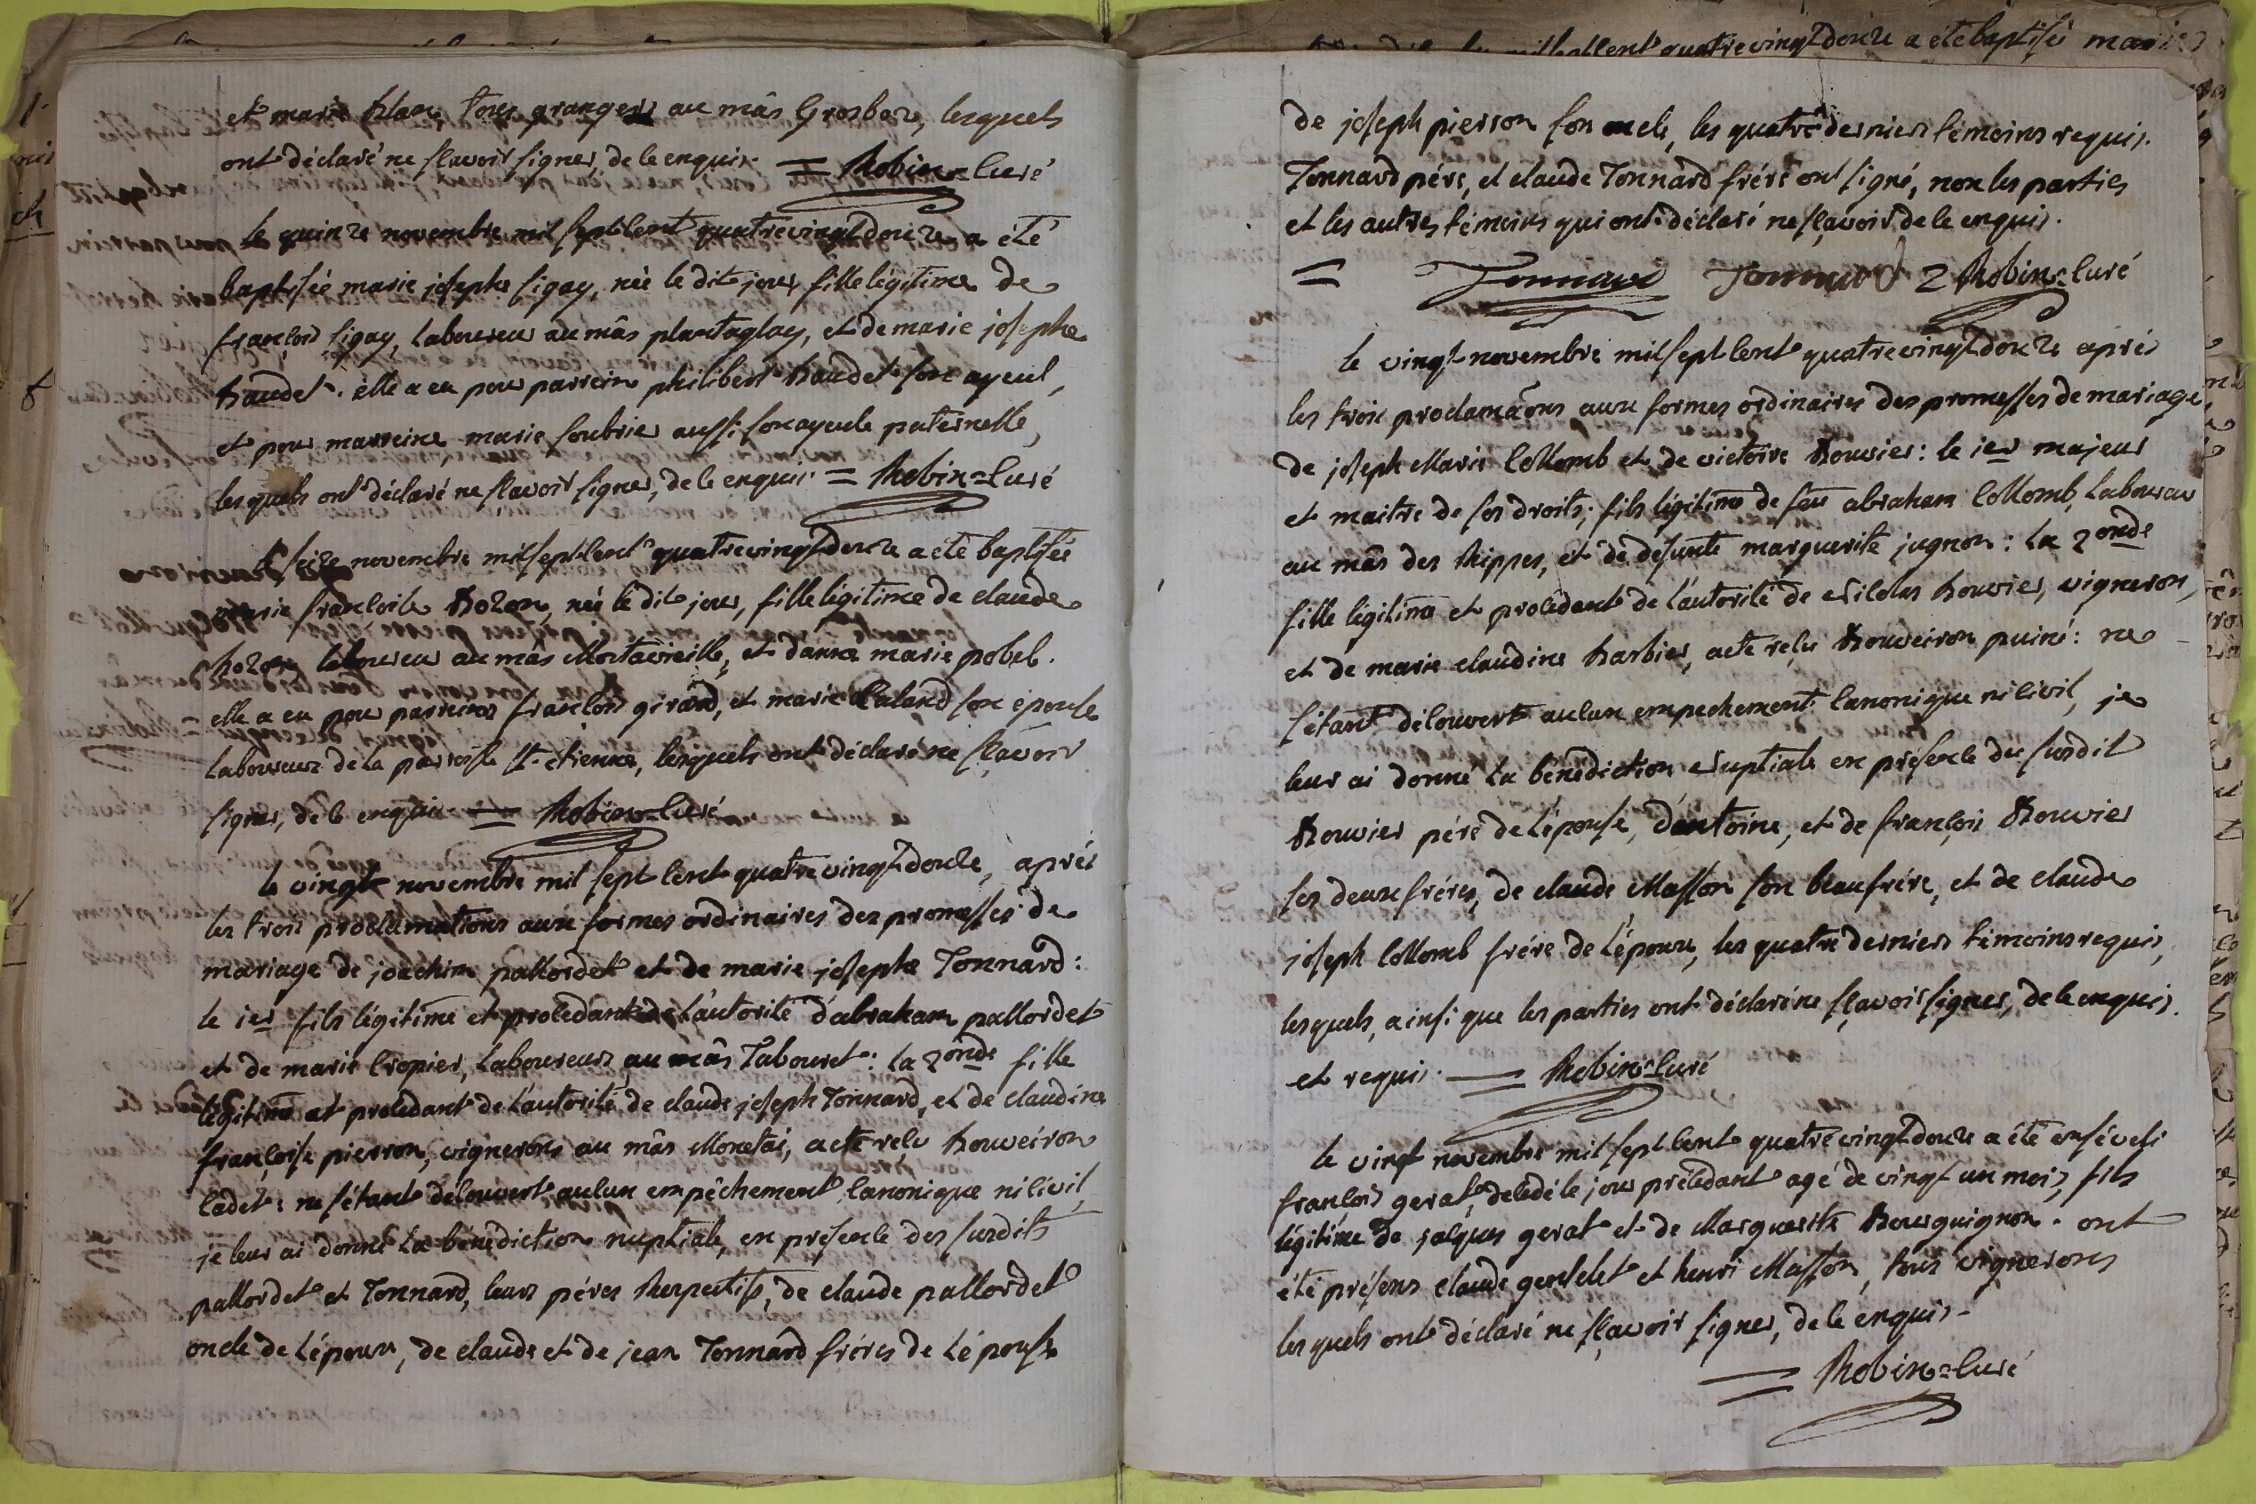 et marie blanc, tous grangers au mâs Grosboze, lesquels
ont déclaré ne sçavoir signer, de ce enquis. = Robin = Curé
le quinze novembre mil sept cent quatre vingt douze a été
baptisée, marie josephe figay, née le dit jour, fille légitime de
françois figay, laboureur au mâs plantaglay, et de marie josephe
baudet. elle a eu pour parrein philibert baudet son ayeul,
et pour marreine, marie soubrier aussi son ayeule paternelle,
lesquels ont déclaré ne sçavoir signer, de ce enquis. = Robin = Curé
le seize novembre mil sept cent quatre vingt douze a été baptisée
marie françoise bozon, née le dit jour, fille légitime de claude
bozon laboureur au mâs Montavieille, et d'anne marie pobel.
elle a eu pour parreins françois girard, et marie Caland son épouse
laboureurs de la parroisse St. étienne, lesquels ont déclaré ne sçavoir
signer, de ce enquis = Robin = Curé
le vingt novembre mil sept cent quatre vingt douze, après
les trois proclamations aux formes ordinaires des promesses de
mariage de joachim pallordet et de marie josephe Tonnard:
le 1er fils légitime et procedant de l'autorité d'abraham pallordet
et de marie Cropier, laboureurs au mâs Tabouret: la 2onde fille
légitime et procedant de l'autorité de claude joseph Tonnard, et de claudine
françoise pierron, vignerons au mâs Monetai, acte reçu bouveiron
Cadet: ne s'étant découvert aucun empêchement canonique ni civil,
je leur ai donné la bénédiction nuptiale, en présence des susdits
pallordet et Tonnard, leurs pères Respectifs, de claude pallordet
oncle de l'époux, de claude et de jean Tonnard frères de l'épouse
de joseph pierron son oncle, les quatre derniers témoins requis.
Tonnard père, et claude Tonnard frère ont signé, non les parties
et les autres témoins qui ont déclaré ne sçavoir de ce enquis.
= Tonnard Tonnard 2 Robin = Curé
le vingt novembre mil sept cent quatre vingt douze après
les trois proclamaõns aux formes ordinaires des promesses de mariage
de joseph Marie Collomb et de victoire Bouvier: le 1er majeur
et maitre de ses droits, fils légitime de feu abraham Collomb, laboureur
au mâs des Rippes, et de defunte marguerite jugnon: la 2onde
fille légitime et procédant de l'autorité de Nicolas bouvier, vigneron,
et de marie claudine barbier, acte reçu Bouveiron puiné: ne
s'étant découvert aucun empechement canonique ni civil, je
leur ai donné la bénédiction Nuptiale en présence du susdit
Bouvier père de l'épouse, d'antoine, et de françois Bouvier
ses deux frères, de claude Masson son beaufrère, et de claude
joseph Collomb frère de l'époux, les quatre derniers témoins requis,
lesquels, ainsi que les parties ont déclaré ne sçavoir signer, de ce enquis.
et requis. = Robin = Curé
le vingt novembre mil sept cent quatre vingt douze a été ensévéli
françois gerat, décédé le jour précédant agé de vingt un mois, fils
légitime de jacques gerat et de Marguerite Bourguignon. ont
été présens claude gercelet et henri Masson, tous vignerons
lesquels ont déclaré ne sçavoir signer, de ce enquis.
= Robin = Curé